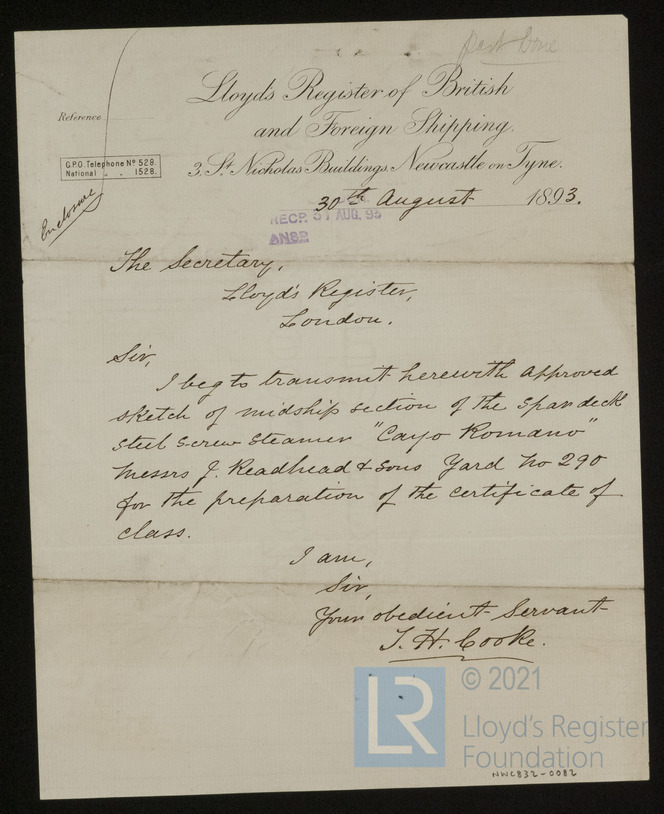 Past Done
Lloyds Register of British
and Foreign Shipping.
Reference
G.P.O. Telephone No 528.
National „ „ 1528.
3, St Nicholas Buildings, Newcastle on Tyne.
Enclosure
30th August 1893.
RECD. 31 AUG. 93
ANSD
The Secretary,
Lloyd's Register,
London.
Sir,
I beg to transmit herewith approved
sketch of midship section of the spardeck
steel screw steamer "Cayo Romano"
Messrs J. Readhead & Sons Yard No 290
for the preparation of the certificate of
class.
I am,
Sir,
Your obedient Servant
J. H. Cooke.
LR
© 2021
Lloyd's Register
Foundation
NWC832-0082